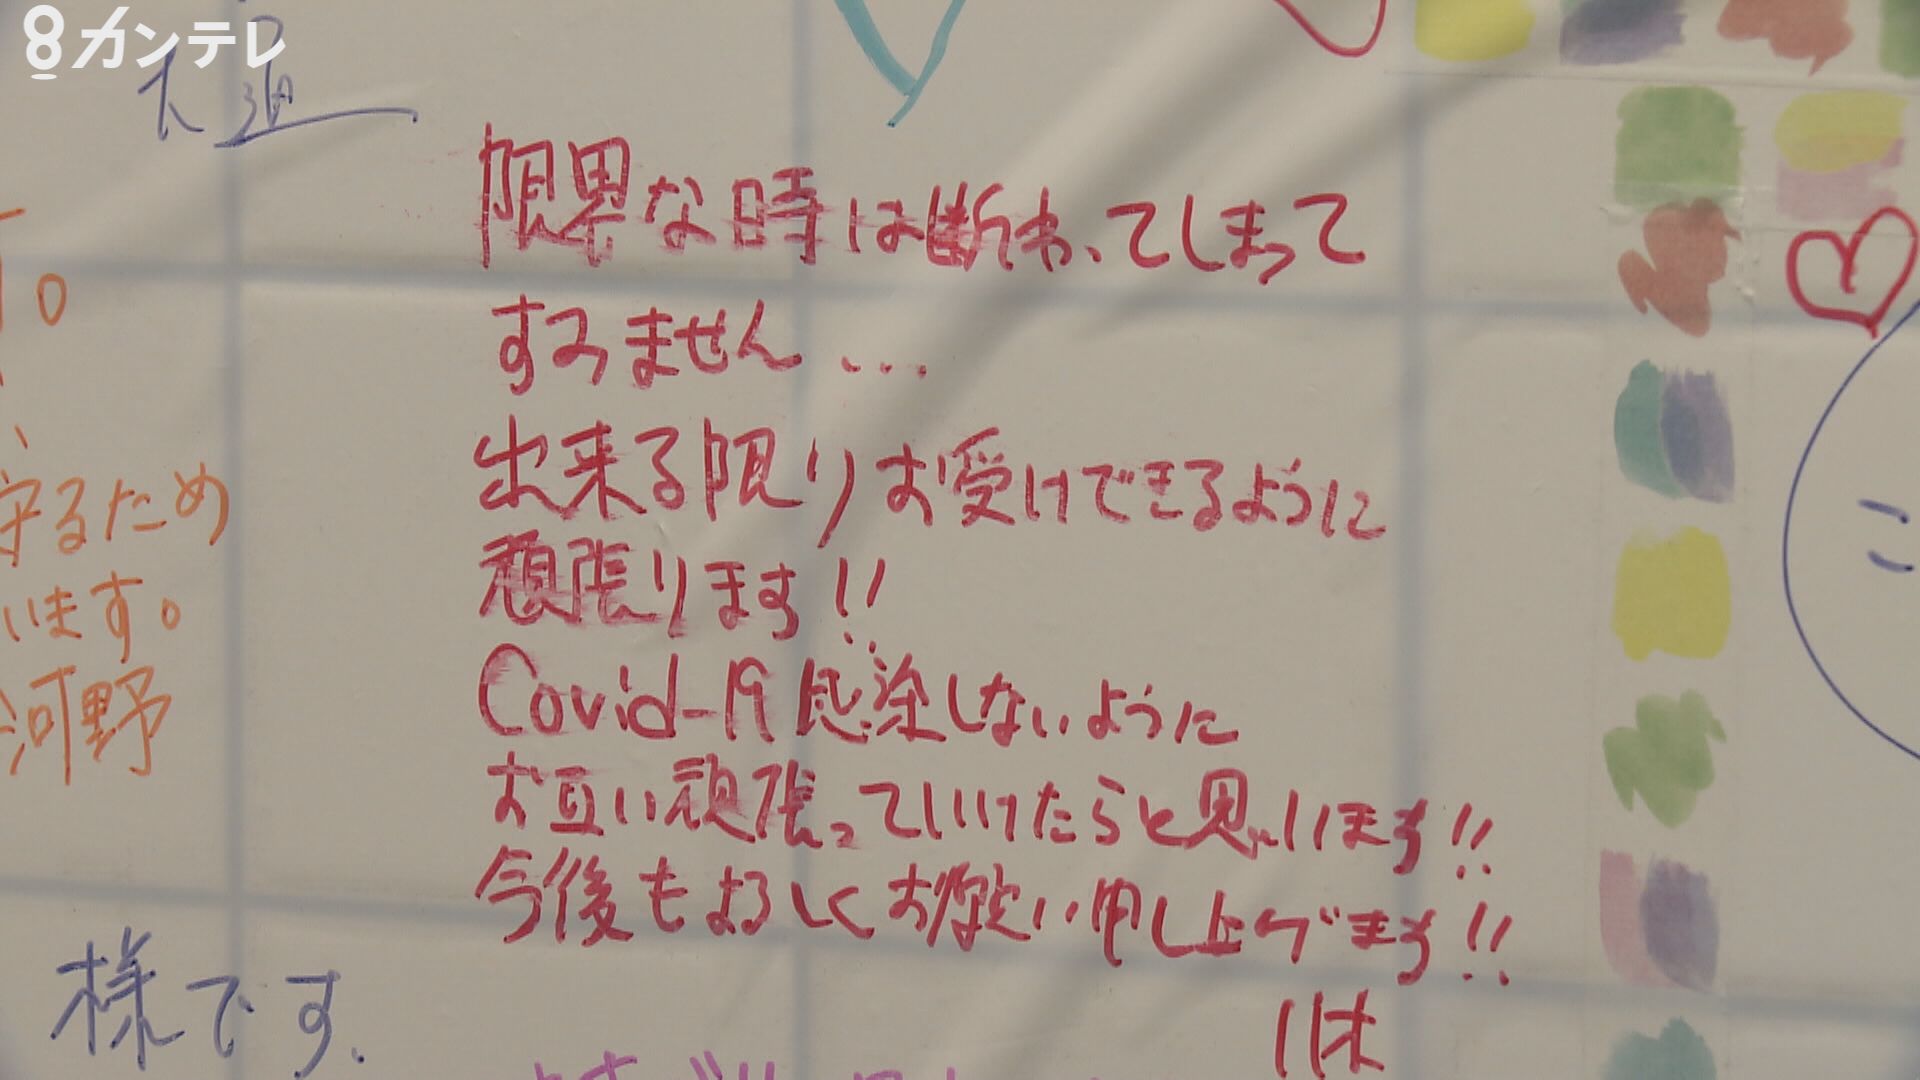 8カンテレ
限界な時は断わってしまって
すみません…
出来る限りお受けできるように
頑張ります!!
Covid-19感染しないように
お互い頑張っていけたらと思います!!
今後もよろしくお願い申し上げます!!
守るため
います。
河野
様です.